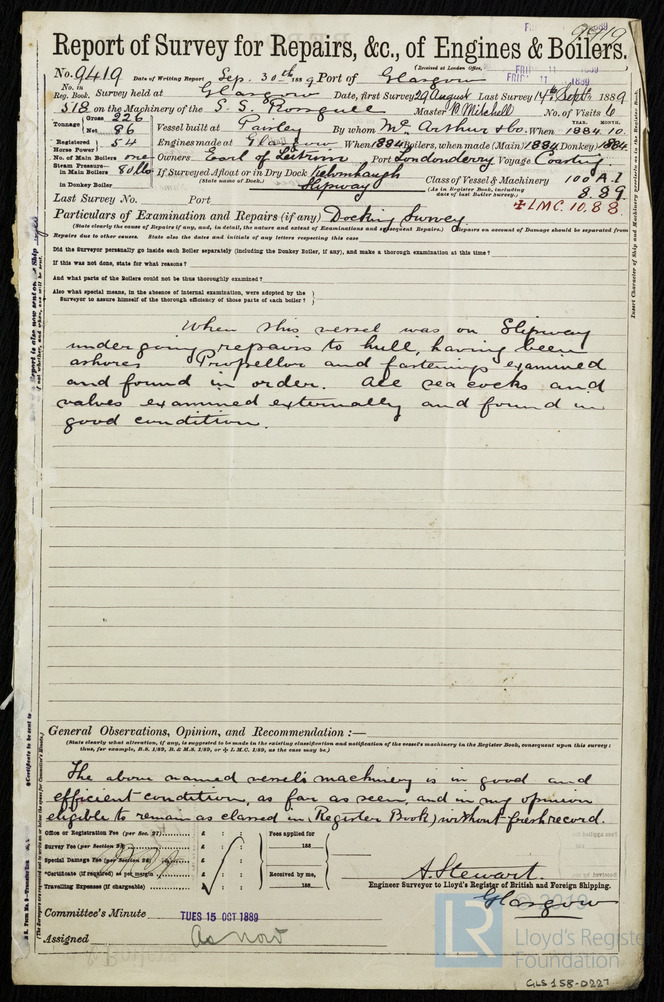 9419
Report of Survey for Repairs, &c., of Engines & Boilers.
(Received at London Office, FRI 11 1889)
No. 9419 Date of Writing Report Sep. 30th 1889 Port of Glasgow
No. in Reg. Book. Survey held at Glasgow Date, first Survey 29 August Last Survey 14th Sept. 1889
518 on the Machinery of the S. S. Rosguill Master Mitchell No. of Visits 6
Tonnage Gross 226 Net 86 Vessel built at Paisley By whom Mc Arthur & Co. When 1884 YEAR. 10 MONTH.
Registered Horse Power 54 Engines made at Glasgow When 1884 Boilers, when made (Main) 1884 (Donkey) 1884
No. of Main Boilers one Owners Earl of Leitrim Port Londonderry Voyage Coasting
Steam Pressure in Main Boilers 80 lb If Surveyed Afloat or in Dry Dock Kelvinhaugh Slipway
(State name of Dock.)
in Donkey Boiler
Class of Vessel & Machinery 100 A.1
(As in Register Book, including date of last Boiler survey.) 8.89
Last Survey No. Port
✠ L.M.C. 10.88
Particulars of Examination and Repairs (if any) Docking Survey
(State clearly the cause of Repairs if any, and, in detail, the nature and extent of Examinations and subsequent Repairs.) Repairs on account of Damage should be separated from
Repairs due to other causes. State also the dates and initials of any letters respecting this case
Did the Surveyor personally go inside each Boiler separately (including the Donkey Boiler, if any), and make a thorough examination at this time?
If this was not done, state for what reasons?
And what parts of the Boilers could not be thus thoroughly examined?
Also what special means, in the absence of internal examination, were adopted by the
Surveyor to assure himself of the thorough efficiency of those parts of each boiler?
When this vessel was on Slipway
undergoing repairs to hull, having been
ashore. Propellor and fastenings examined
and found in order. All sea cocks and
valves examined externally and found in
good condition.
General Observations, Opinion, and Recommendation :—
(State clearly what alteration, if any, is suggested to be made in the existing classification and notification of the vessel's machinery in the Register Book, consequent upon this survey;
thus, for example, B.S. 1/89, B. & M.S. 1/89, or ✠ L.M.C. 1/89, as the case may be.)
The above named vessel's machinery is in good and
efficient condition, as far as seen, and in my opinion
eligible to remain as classed in (Register Book) without fresh record.
Office or Registration Fee (per Sec. 27) £ : : Fees applied for
Survey Fee (per Section 28) £ : : 188
Special Damage Fee (per Section 28) £ : :
*Certificate (if required) as per margin £ : : Received by me,
Travelling Expenses (if chargeable) £ : : 188
A. Stewart.
Engineer Surveyor to Lloyd's Register of British and Foreign Shipping.
Glasgow
Committee's Minute TUES 15 OCT 1889
Assigned as now
Insert Character of Ship and Machinery precisely as in the Register Book.
© 2019
LR
Lloyd's Register
Foundation
GLS 158-0227